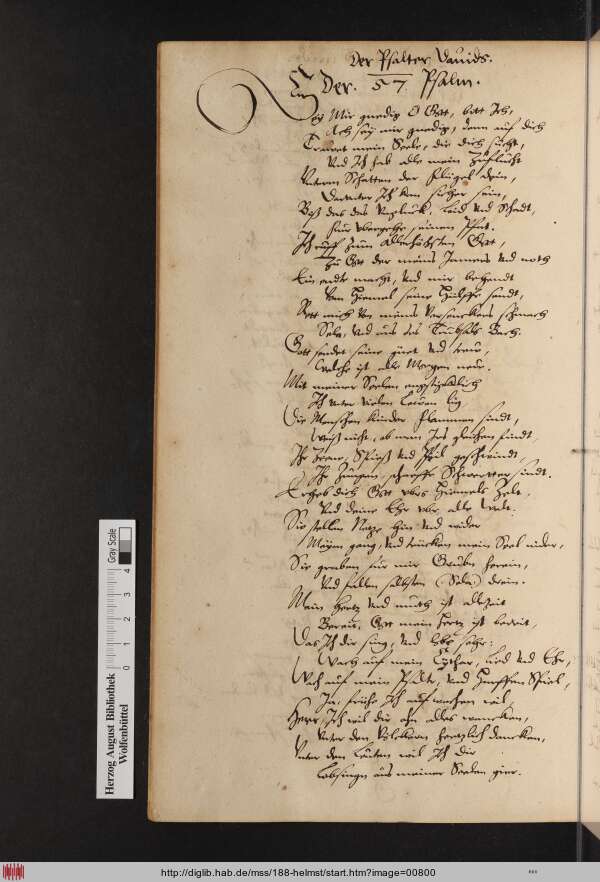 Der Psalter Dauids.
Der. 57 Psalm.
Sey Mir gnedig O Gott, bitt Ich,
Ach sey mir gnedig, dann auf dich
Trauet mein Seele, die dich sucht,
Und Ich hab alle mein Zuflucht
Unterm Schatten der Flügel dein,
Darunter Ich kan sicher sein,
Biß das das Unglück, Leid und Schad,
fur ubergehe seinen Pfat.
Ich ruff zum Allerhöchsten Gott,
Zu Gott der meins Jamers und noth
Ein ende macht, und mir behendt
Von Himel seine Hülffe sendt,
Rett mich von meins schmach
Sela, und aus des Trübsals Bach.
Gott sendet seine güet und treue,
Welche ist alle Morgen neue.
Mit meiner Seelen engstiglich
Ich unter vielen Leuen lig,
Die Menschen Kinder Flammen sindt,
Weiß nicht, ob man Irs gleichen findt,
Ihr Zeene, Spieß und Pfeil geschwindt,
Ihr Zungen scharffe Schwerter sindt.
Erheb dich Gott ubers Himmels Zelt,
Und deine Ehr uber alle Welt.
Sie stellen Netze hin und wider
Meim gang, und trucken mein Seel nider,
Sie graben für mir Gruben herein,
Und fallen selbsten (Sela) drein.
Mein Hertz und muth ist allezeit
Bereit, Gott mein Hertz ist bereit,
Das Ich dir sing, und lobe sehr:
Wach auf mein Cythar, Lied und Ehr,
Wach auf mein Psalter, und Harffen Spiel,
Ja, frühe Ich auf wachen wil,
Herr, Ich wil dir ohn alles wancken,
Unter den Völckern hertzlich dancken,
Unter den Leuten wil Ich dir
Lobsingen aus meiner Seelen gier.
Herzog August Bibliothek
Wolfenbüttel
0 1 2 3 4
Gray Scale
http://diglib.hab.de/mss/188-helmst/start.htm?image=00800